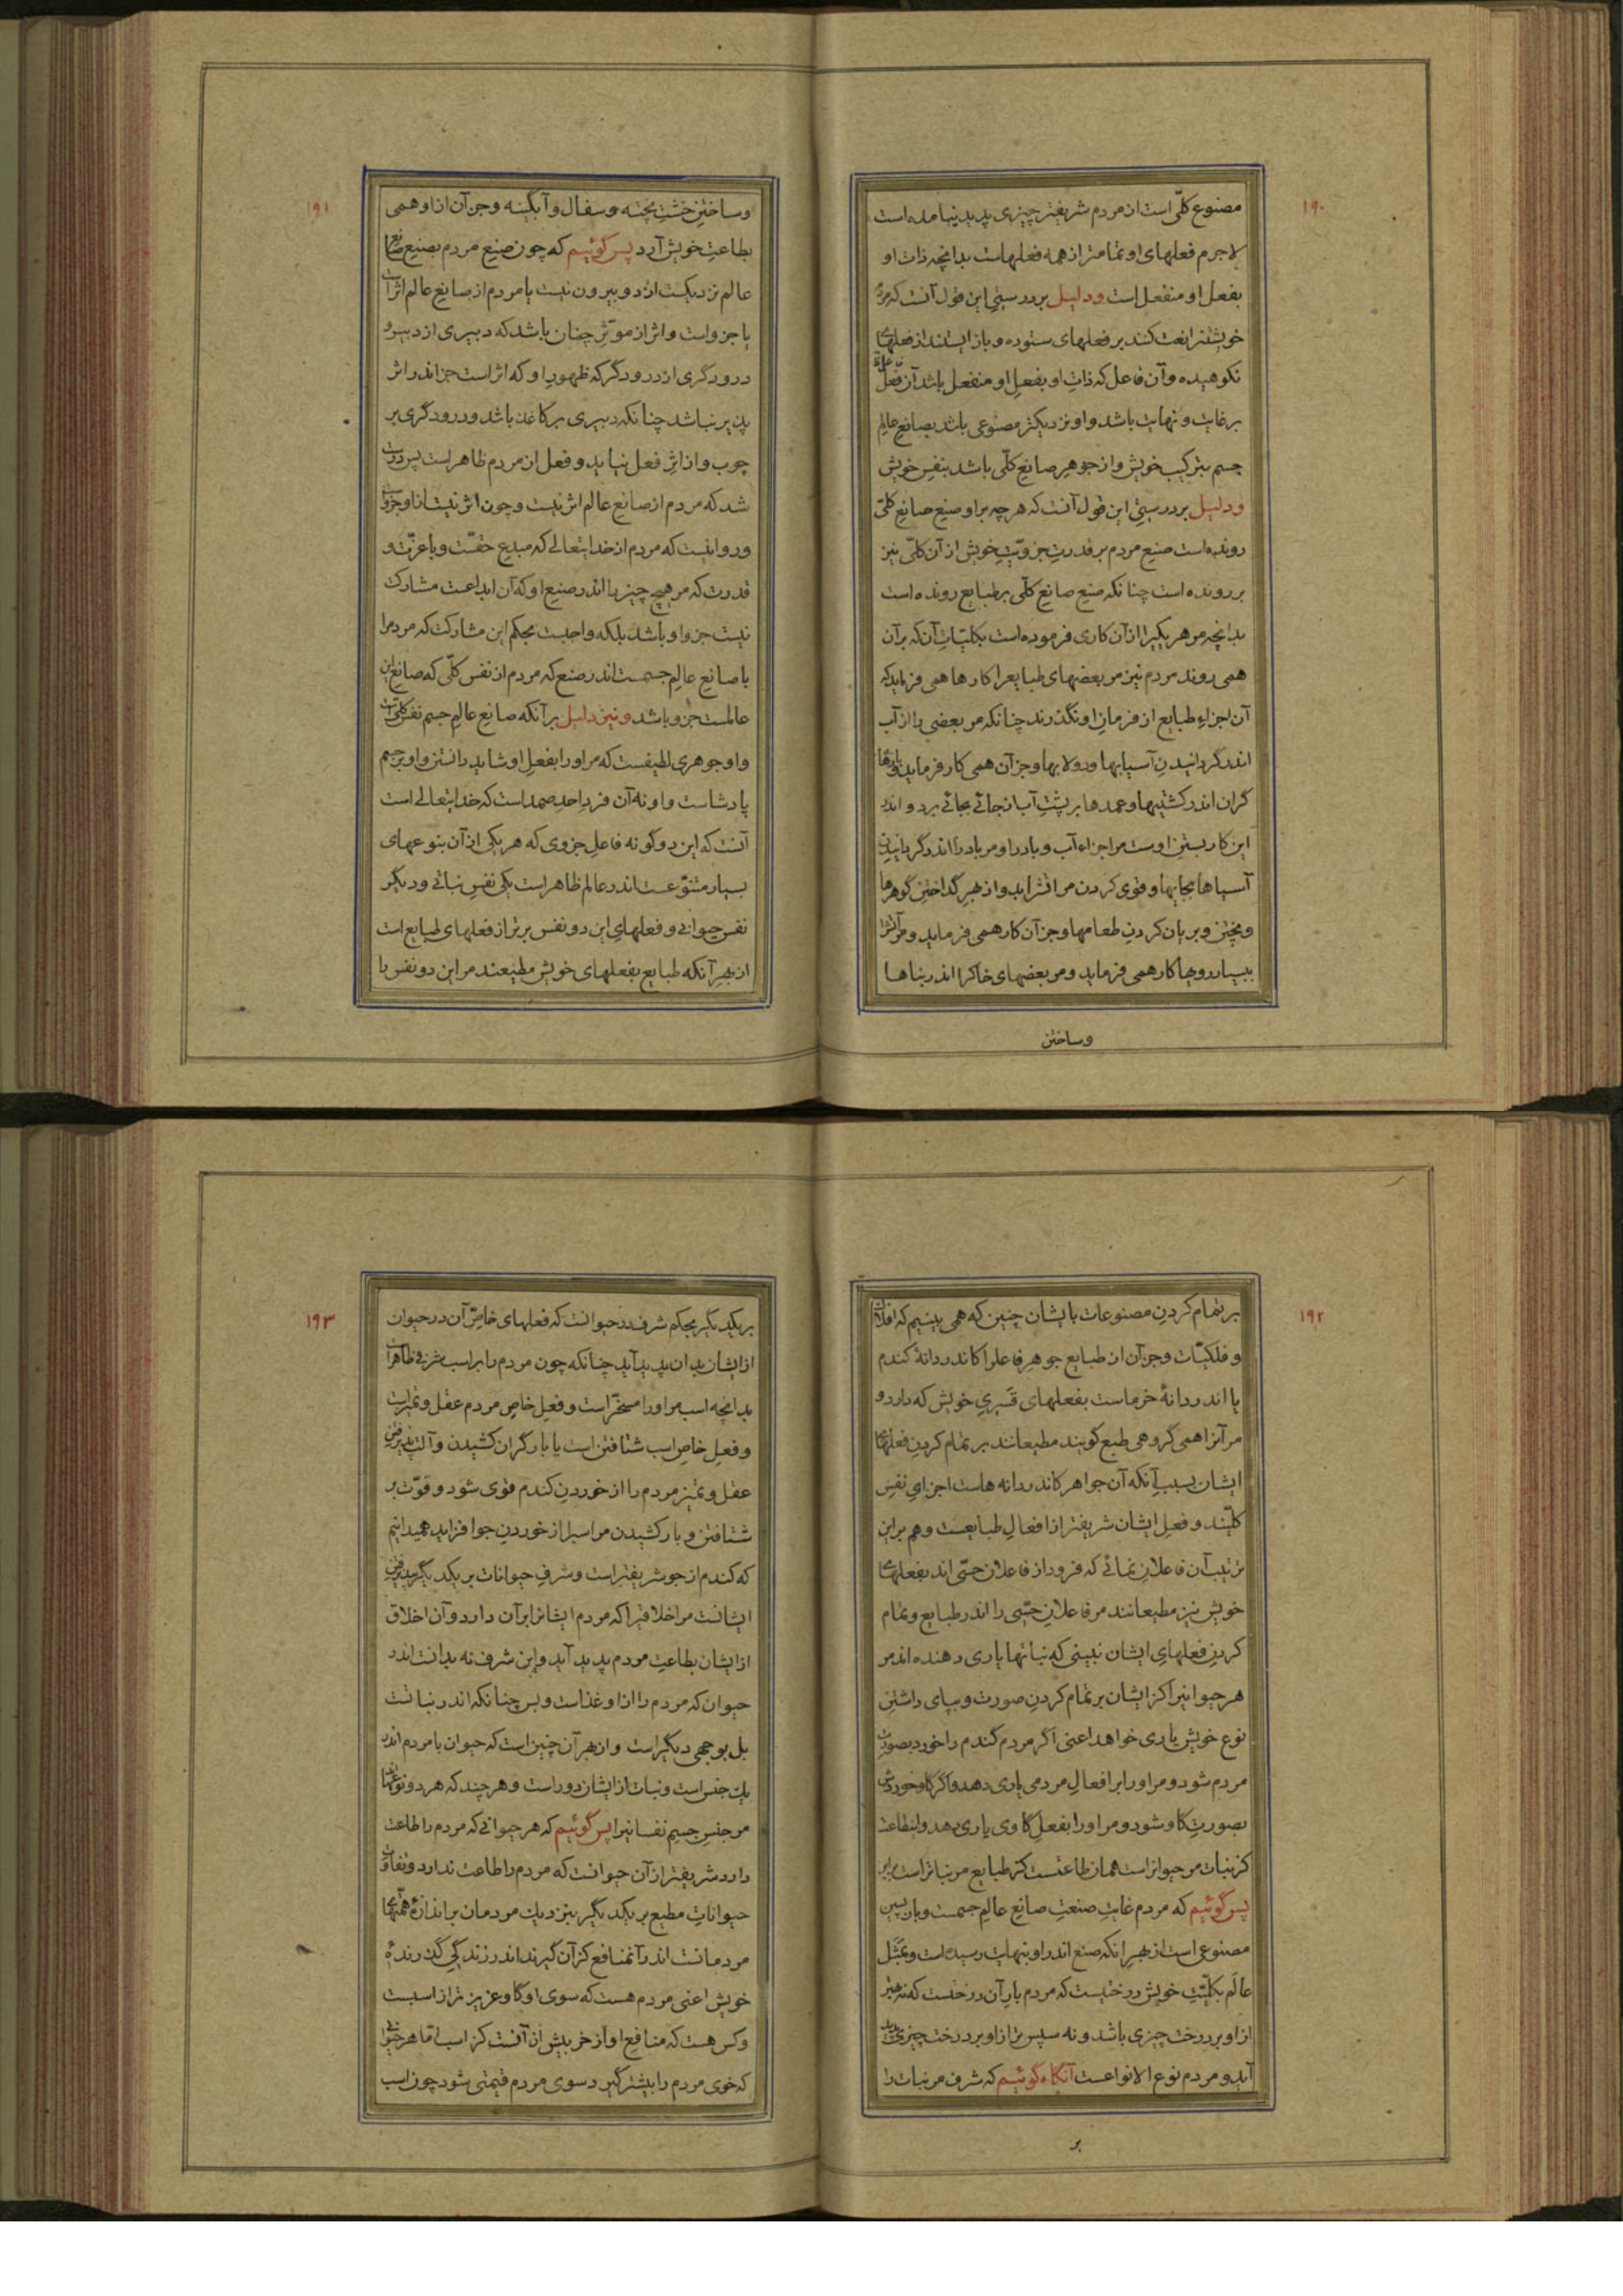 ۱۹۰
مصنوع کلّی است از مردم شریفتر چیزی پدید نیامده است
لاجرم فعلهای او تمامتر از همه فعلهاست بدانچه ذات او
بفعل او منفعل است ودلیل بر درستی این قول آنست که مردم
خویشتن را بعث کند بر فعلهای ستوده و باز ایستد از فعلهای
نکوهیده و آن فاعل که ذات او بفعل او منفعل باشد آن فعل
بر غایت و نهایت باشد و او نزدیکتر مصنوعی باشد بصانع عالم
جسم بترکیب خویش و از جوهر صانع کلّی باشد بنفس خویش
ودلیل بر درستی این قول آنست که هر چه بر او صنع صانع کلّی
رونده است صنع مردم بر قدرت جزویّت خویش از آن کلّی نیز
بر رونده است چنانکه صنع صانع کلّی بر طبایع رونده است
بدانچه مر هر یکیرا از آن کاری فرموده است بکلیّات آن که بر آن
همی روند مردم نیز مر بعضهای طبایع را کارها همی فرماید که
آن اجزاء طبایع از فرمان او نگذرند چنانکه مر بعضی را از آب
اندر گردانیدن آسیابها و دولابها و جز آن همی کار فرماید و بارها
گران اندر کشتیها و عمدها بر پشت آب از جائے بجائے برد و اندر
این کار بستن اوست مر اجزاء آب و باد را و مر باد را اندر گردانیدن
آسیاها بجایها و قوی کردن مر آتش را بدو از بهر گداختن گوهرها
و پختن و بریان کردن طعامها و جز آن کار همی فرماید و مر آتش را
ببسیار رویها کار همی فرماید و مر بعضهای خاک را اندر بناها
وساختن
۱۹۱
وساختن خشت پخته و سفال و آبگینه و جز آن از او همی
بطاعت خویش آرد پس گوئیم که چون صنع مردم بصنع صانع
عالم نزدیکست از دو بیرون نیست یا مردم از صانع عالم اثر است
یا جزو است و اثر از مؤثر چنان باشد که دبیری از دبیر و
درودگری از درودگر که ظهور او که اثر است جز اندر اثر
پذیر نباشد چنانکه دبیری بر کاغذ باشد و درودگری بر
چوب و از اثر فعل نیاید و فعل از مردم ظاهر است پس درست
شد که مردم از صانع عالم اثر نیست و چون اثر نیست از او جزو است
و روا نیست که مردم از خدایتعالے که مبدع حقست و با عزّت و
قدرت که مر هیچ چیز را اندر صنع او که آن ابداعست مشارکت
نیست جزو او باشد بلکه واجبست بحکم این مشارکت که مردم را
با صانع عالم جسمست اندر صنع که مردم از نفس کلّی که صانع این
عالمست جزو باشد و نیز دلیل بر آنکه صانع عالم جسم نفس کلّی است
و او جوهری لطیفست که مر او را بفعل او شاید دانستن و او بر جسم
پادشاست و او نه آن فرد احد صمد است که خدایتعالے است
آنست که این دو گونه فاعل جزوی که هر یکی از آن بنوعهای
بسیار متنوّعست اندر عالم ظاهر است یکی نفس نباتی و دیگر
نفس حیوانی و فعلهای این دو نفس برتر از فعلهای طبایع است
از بهر آنکه طبایع بفعلهای خویش مطیعند مر این دو نفس را
۱۹۲
بر تمام کردن مصنوعات ایشان چنین که همی بینیم که افلاک
و فلکیّات و جز آن از طبایع جوهر فاعل را کاندر دانهٔ گندم
یا اندر دانهٔ خرماست بفعلهای قسری خویش که دارد و
مر آنرا همی گروهی طبع گویند مطیعانند بر تمام کردن فعلهای
ایشان بسبب آنکه آن جواهر کاندر دانه هاست اجزای نفس
کلّیند و فعل ایشان شریفتر از افعال طبایعست و هم بر این
ترتیب آن فاعلان نمائے که فرود از فاعلان حسّی اند بفعلهای
خویش نیز مطیعانند مر فاعلان حسّی را اندر طبایع و تمام
کردن فعلهای ایشان نبینی که نباتها یاری دهنده اند مر
هر حیوانیرا کز ایشان بر تمام کردن صورت و بپای داشتن
نوع خویش یاری خواهد اعنی اگر مردم گندم را خورد بصورت
مردم شود و مر او را بر افعال مردمی یاری دهد و اگر گاو خوردش
بصورت گاو شود و مر او را بفعل گاوی یاری دهد و این طاعت
کز نبات مر حیوانراست همان طاعتست کز طبایع مر نباتراست برابر
پس گوئیم که مردم غایت صنعت صانع عالم جسمست و بازپسین
مصنوعی است از بهر آنکه صنع اندر او بنهایت رسیده است و بمثل
عالم بکلیّت خویش درختیست که مردم بار آن درختست که نه بهتر
از او بر درخت چیزی باشد و نه سپس تر از او بر درخت چیزی پدید
آید و مردم نوع الانواعست آنگاه گوئیم که شرف مر نبات را
بر
۱۹۳
بر یکدیگر بحکم شرف در حیوانست که فعلهای خاصّ آن در حیوان
از ایشان بدان پدید آید چنانکه چون مردم را بر اسب شرفی ظاهر است
بدانچه اسب مر او را مسخّر است و فعل خاص مردم عقل و تمیز است
و فعل خاص اسب شتافتن است یا بار گران کشیدن و آلت پذیرفتن
عقل و تمیز مردم را از خوردن گندم قوی شود و قوّت بر
شتافتن و بار کشیدن مر اسبرا از خوردن جو افزاید همیدانیم
که گندم از جو شریفتر است و شرف حیوانات بر یکدیگر بپذیرفتن
ایشانست مر اخلاقیرا که مردم ایشانرا بر آن دارد و آن اخلاق
از ایشان بطاعت مردم پدید آید و این شرف نه بدانست اندر
حیوان که مردم را از او غذاست و بس چنانکه اندر نباتست
بل بوجهی دیگر است و از بهر آن چنین است که حیوان با مردم اندر
یک جنس است و نبات از ایشان دور است و هر چند که هر دو نوعها
مر جنس جسم نفسانیرا پس گوئیم که هر حیوانی که مردم را طاعت
دارد شریفتر از آن حیوانست که مردم را طاعت ندارد و تفاوت
حیوانات مطیع بر یکدیگر بنزدیک مردمان بر اندازهٔ همّتهای
مردمانست اندر آنمنافع کز آن گیرند اندر زندگی گذرندهٔ
خویش اعنی مردم هست که سوی او گاو عزیز تر از اسبست
و کس هست که منافع او از خر بیش از آنست کز اسب امّا هر حیوانی
که خوی مردم را بیشتر گیرد سوی مردم قیمتی شود چون اسب